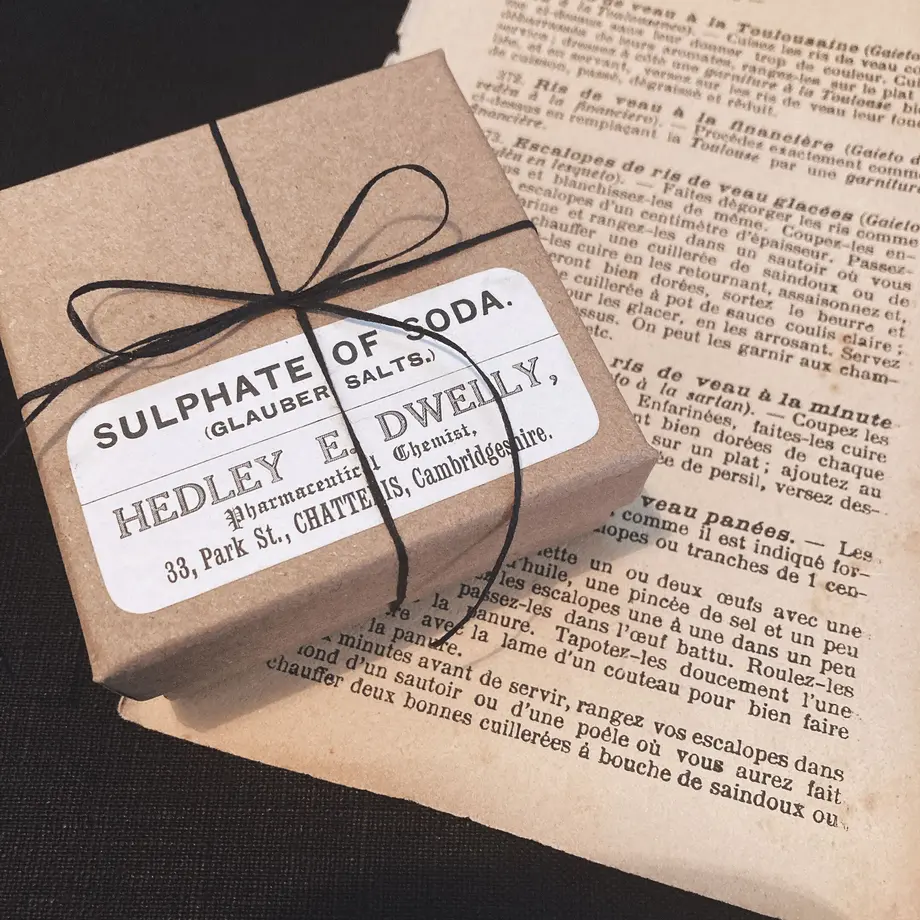 SULPHATE OF SODA.
(GLAUBER SALTS.)
HEDLEY E. DWELLY,
Pharmaceutical Chemist,
33, Park St., CHATTERIS, Cambridgeshire.
de veau à la Toulousaine (Gaieto
à la Toulousenco). — Cuisez les ris de veau
ci-dessus sans leur donner trop de couleur.
débarrassés de leurs aromates, rangez-les sur le plat
service; dressez à côté une garniture à la Toulouse
et, en servant, versez sur les ris de veau leur fond
de cuisson, passé, dégraissé et réduit.
372. Ris de veau à la financière (Gaieto
à la financiero). — Procédez exactement comme
ci-dessus en remplaçant la Toulouse par une garniture
financière.
73. Escalopes de ris de veau glacées (Gaieto
en lesqueto). — Faites dégorger les ris comme
et blanchissez-les de même. Coupez-les en
escalopes d'un centimètre d'épaisseur. Passez-
et rangez-les dans un sautoir où vous
chauffer une cuillerée de saindoux ou de
cuire en les retournant, assaisonnez et,
bien dorées, sortez le beurre et
cuillerée à pot de sauce coulis claire;
les glacer, en les arrosant. Servez
On peut les garnir aux cham-
etc.
ris de veau à la minute
à la sartan). — Coupez les
Enfarinées, faites-les cuire
bien dorées de chaque
sur un plat; ajoutez au
de persil, versez des-
veau panées. — Les
comme il est indiqué
ou tranches de 1 cen-
un ou deux œufs avec une
d'huile, une pincée de sel et un peu
les escalopes une à une dans un peu
passez-les dans l'œuf battu. Roulez-les
la panure. Tapotez-les doucement l'une
avec la lame d'un couteau pour bien faire
la panure.
minutes avant de servir, rangez vos escalopes dans
fond d'un sautoir ou d'une poêle où vous aurez fait
chauffer deux bonnes cuillerées à bouche de saindoux ou